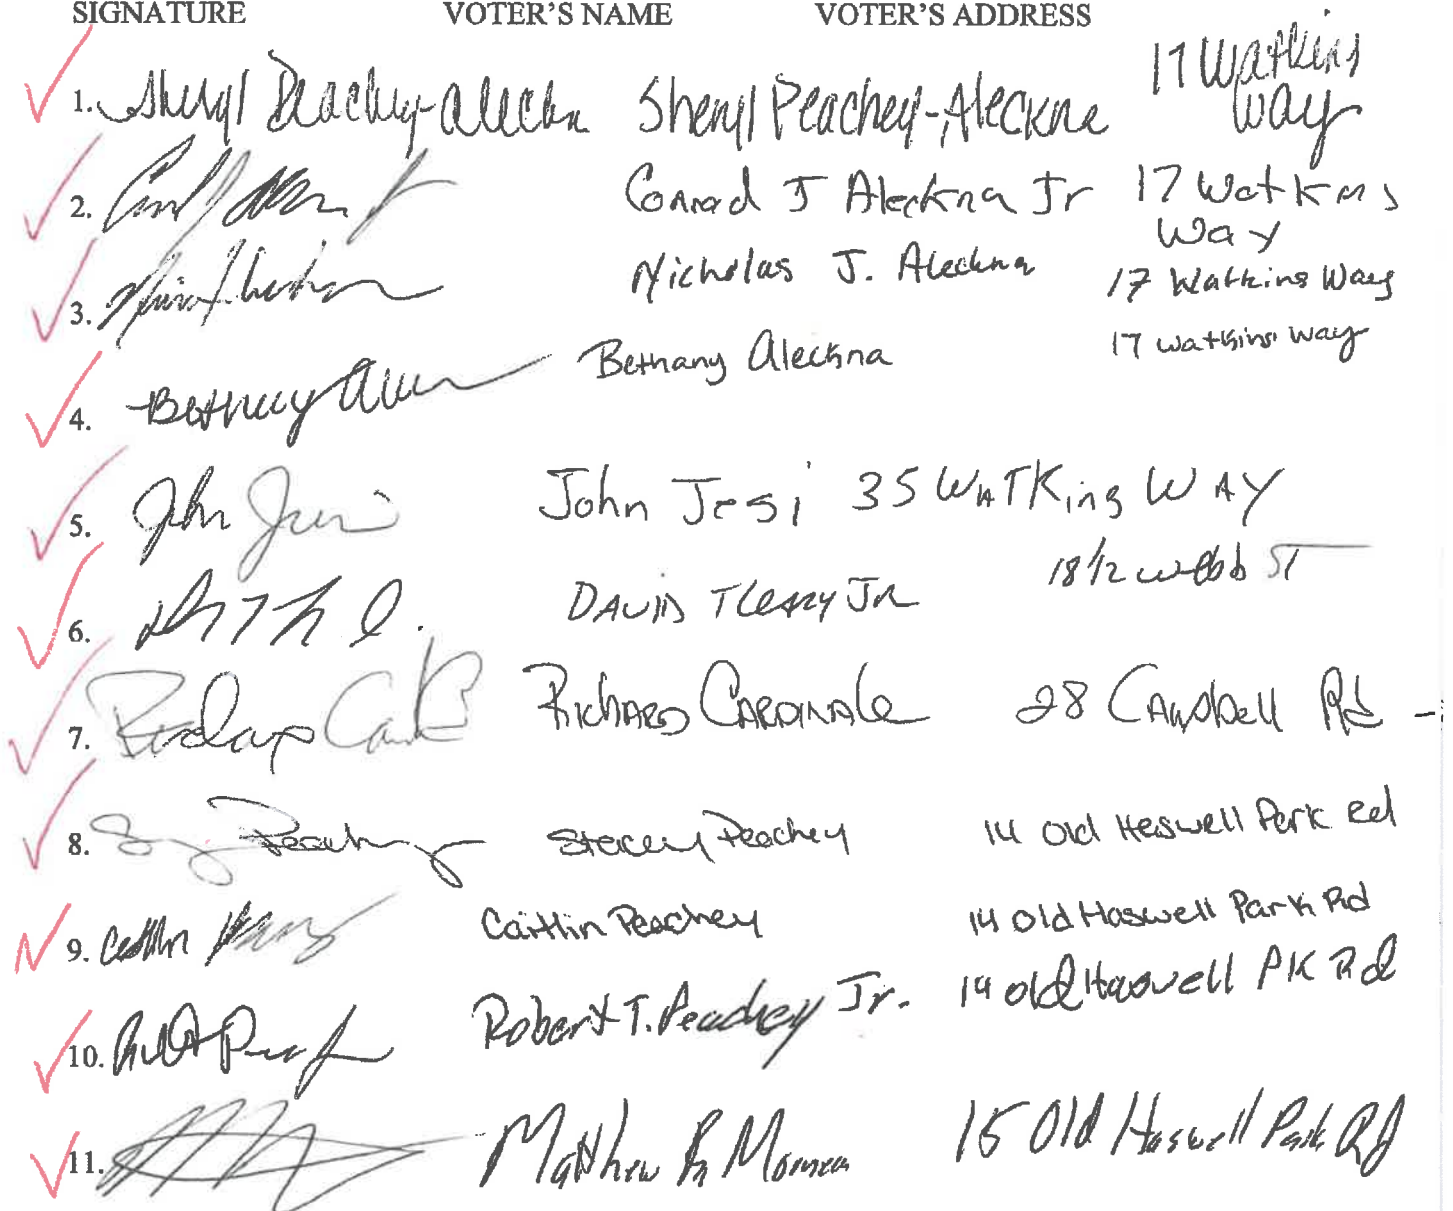 SIGNATURE VOTER'S NAME VOTER'S ADDRESS
1. Sheryl Peachey-Aleckna Sheryl Peachey-Aleckna 17 Watkins
Way
2. Conrad J Aleckna Jr 17 Watkins
Way
3. Nicholas J. Aleckna 17 Watkins Way
4. Bethany Bethany Aleckna 17 Watkins Way
5. John John Jesi 35 WATKins WAY
6. DAVID T LEARY JR 18 1/2 Webb ST
7. RICHARD CARDINALE 28 Campbell Rd -
8. Peachey Stacey Peachey 14 Old Haswell Park Rd
9. Caitlin Caitlin Peachey 14 Old Haswell Park Rd
10. Robert T. Peachey Jr. 14 Old Haswell PK Rd
11. Matthew 15 Old Haswell Park Rd